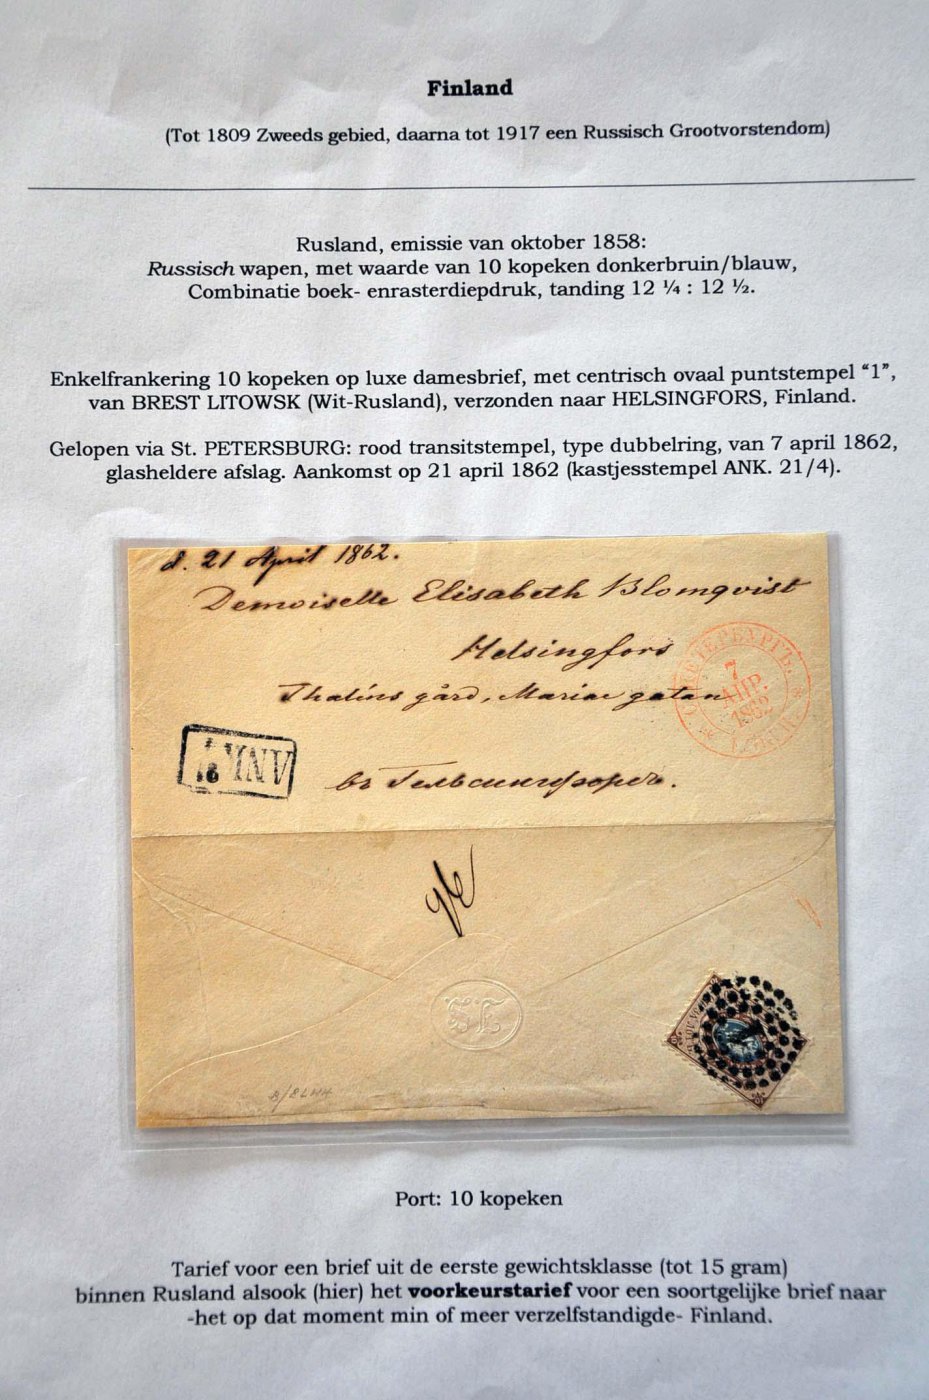 Finland
(Tot 1809 Zweeds gebied, daarna tot 1917 een Russisch Grootvorstendom)
Rusland, emissie van oktober 1858:
Russisch wapen, met waarde van 10 kopeken donkerbruin/blauw,
Combinatie boek- enrasterdiepdruk, tanding 12 ¼ : 12 ½.
Enkelfrankering 10 kopeken op luxe damesbrief, met centrisch ovaal puntstempel “1”,
van BREST LITOWSK (Wit-Rusland), verzonden naar HELSINGFORS, Finland.
Gelopen via St. PETERSBURG: rood transitstempel, type dubbelring, van 7 april 1862,
glasheldere afslag. Aankomst op 21 april 1862 (kastjesstempel ANK. 21/4).
d. 21 April 1862.
Demoiselle Elisabeth Blomqvist
Helsingfors
Thalins gård, Mariae gatan
7
АПР.
1862
ANK
21
въ Гельсингфорсъ.
Port: 10 kopeken
Tarief voor een brief uit de eerste gewichtsklasse (tot 15 gram)
binnen Rusland alsook (hier) het voorkeurstarief voor een soortgelijke brief naar
-het op dat moment min of meer verzelfstandigde- Finland.